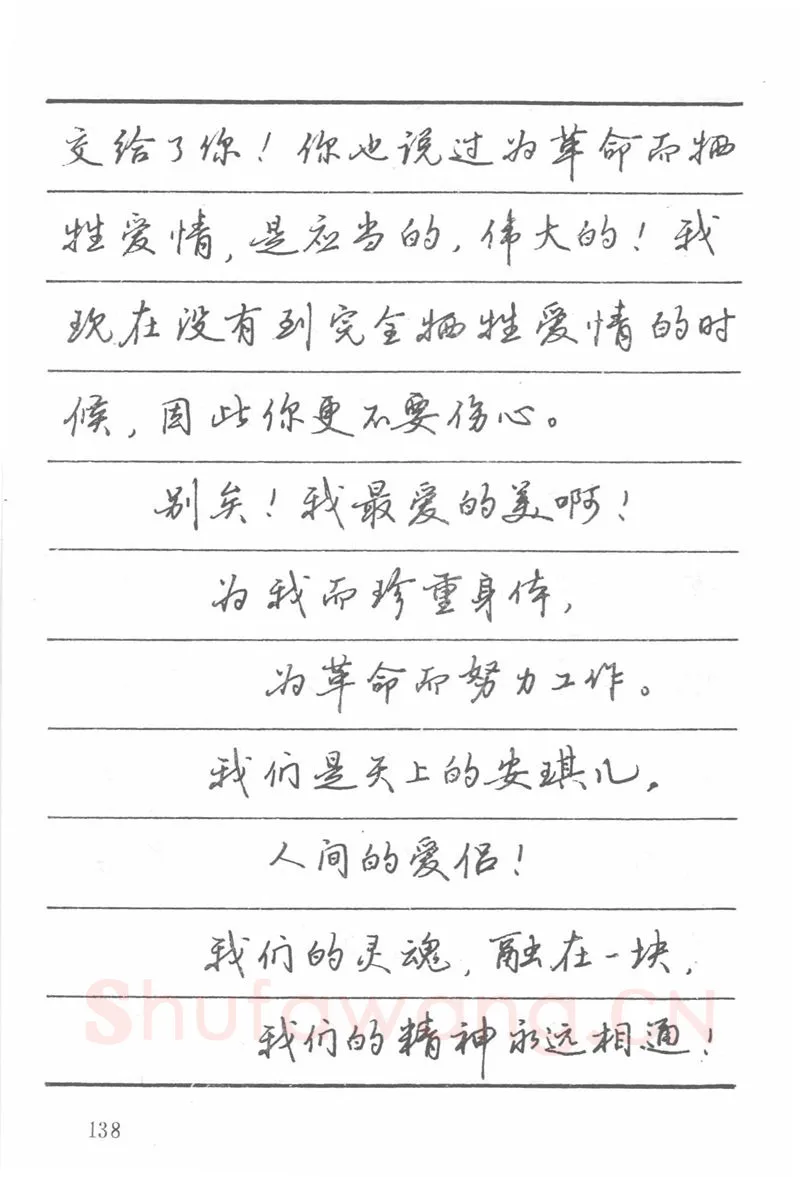 交给了你！你也说过为革命而牺
牲爱情，是应当的，伟大的！我
现在没有到完全牺牲爱情的时
候，因此你更不要伤心。
别矣！我最爱的美啊！
为我而珍重身体，
为革命而努力工作。
我们是天上的安琪儿，
人间的爱侣！
我们的灵魂，融在一块，
我们的精神永远相通！
Shufawang.CN
138